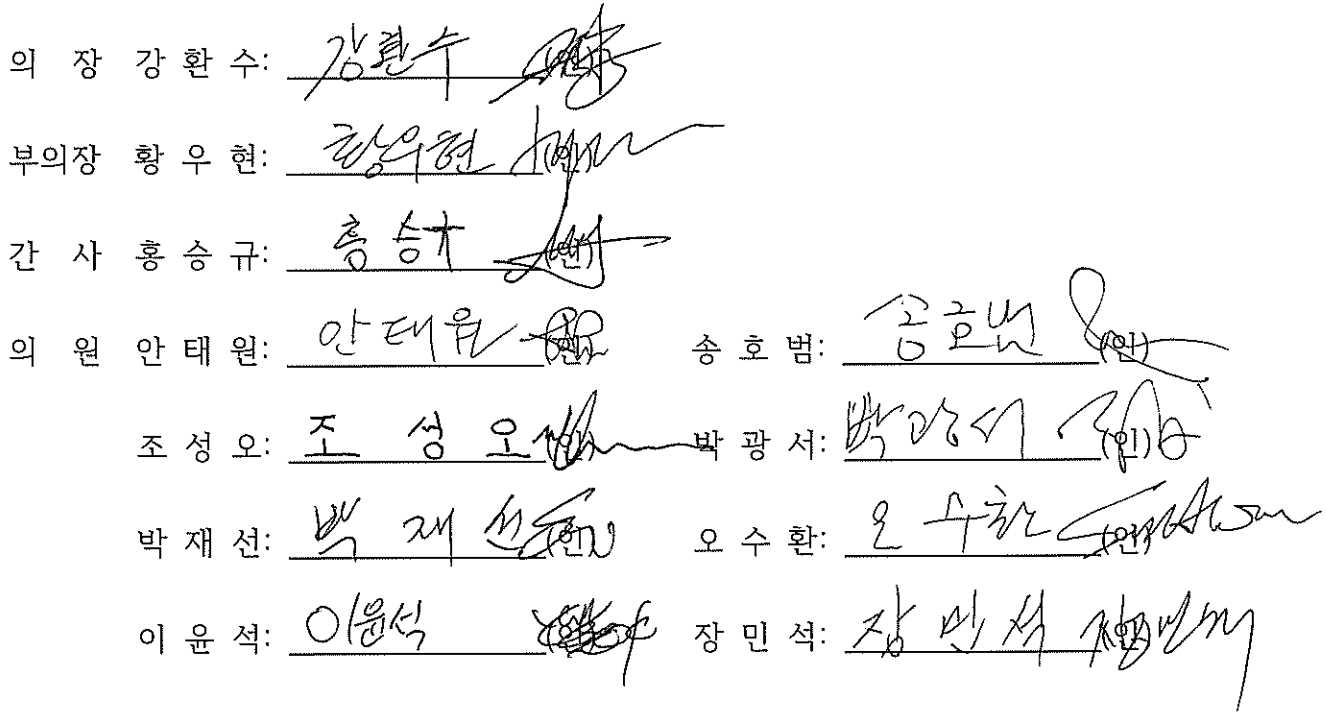 의 장 강 환 수: 강환수 (인)
부의장 황 우 현: 황우현 (인)
간 사 홍 승 규: 홍승규 (인)
의 원 안 태 원: 안태원 (인) 송 호 범: 송호범 (인)
조 성 오: 조 성 오 (인) 박 광 서: 박광서 (인)
박 재 선: 박 재 선 (인) 오 수 환: 오 수환 (인)
이 윤 석: 이윤석 (인) 장 민 석: 장 민 석 (인)